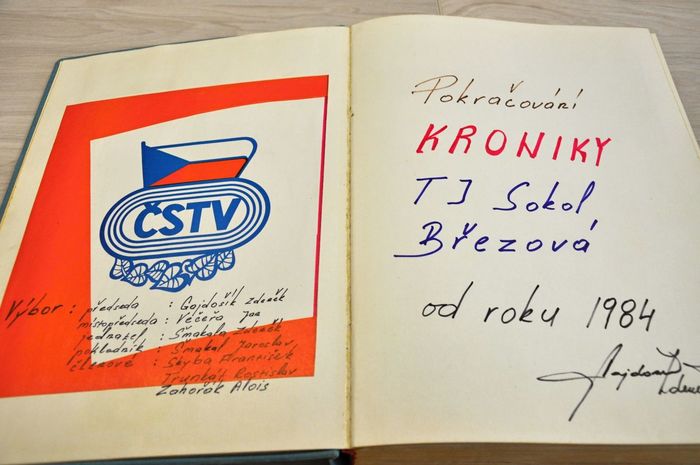 ČSTV
Výbor : předseda : Gajdošík Zdeněk
místopředseda : Večeřa Jan
jednatel : Šmakala Zdeněk
pokladník : Smakal Jaroslav
členové : Skyba František
Trunkát Rostislav
Zahořák Alois
Pokračování
KRONIKY
TJ Sokol
Březová
od roku 1984